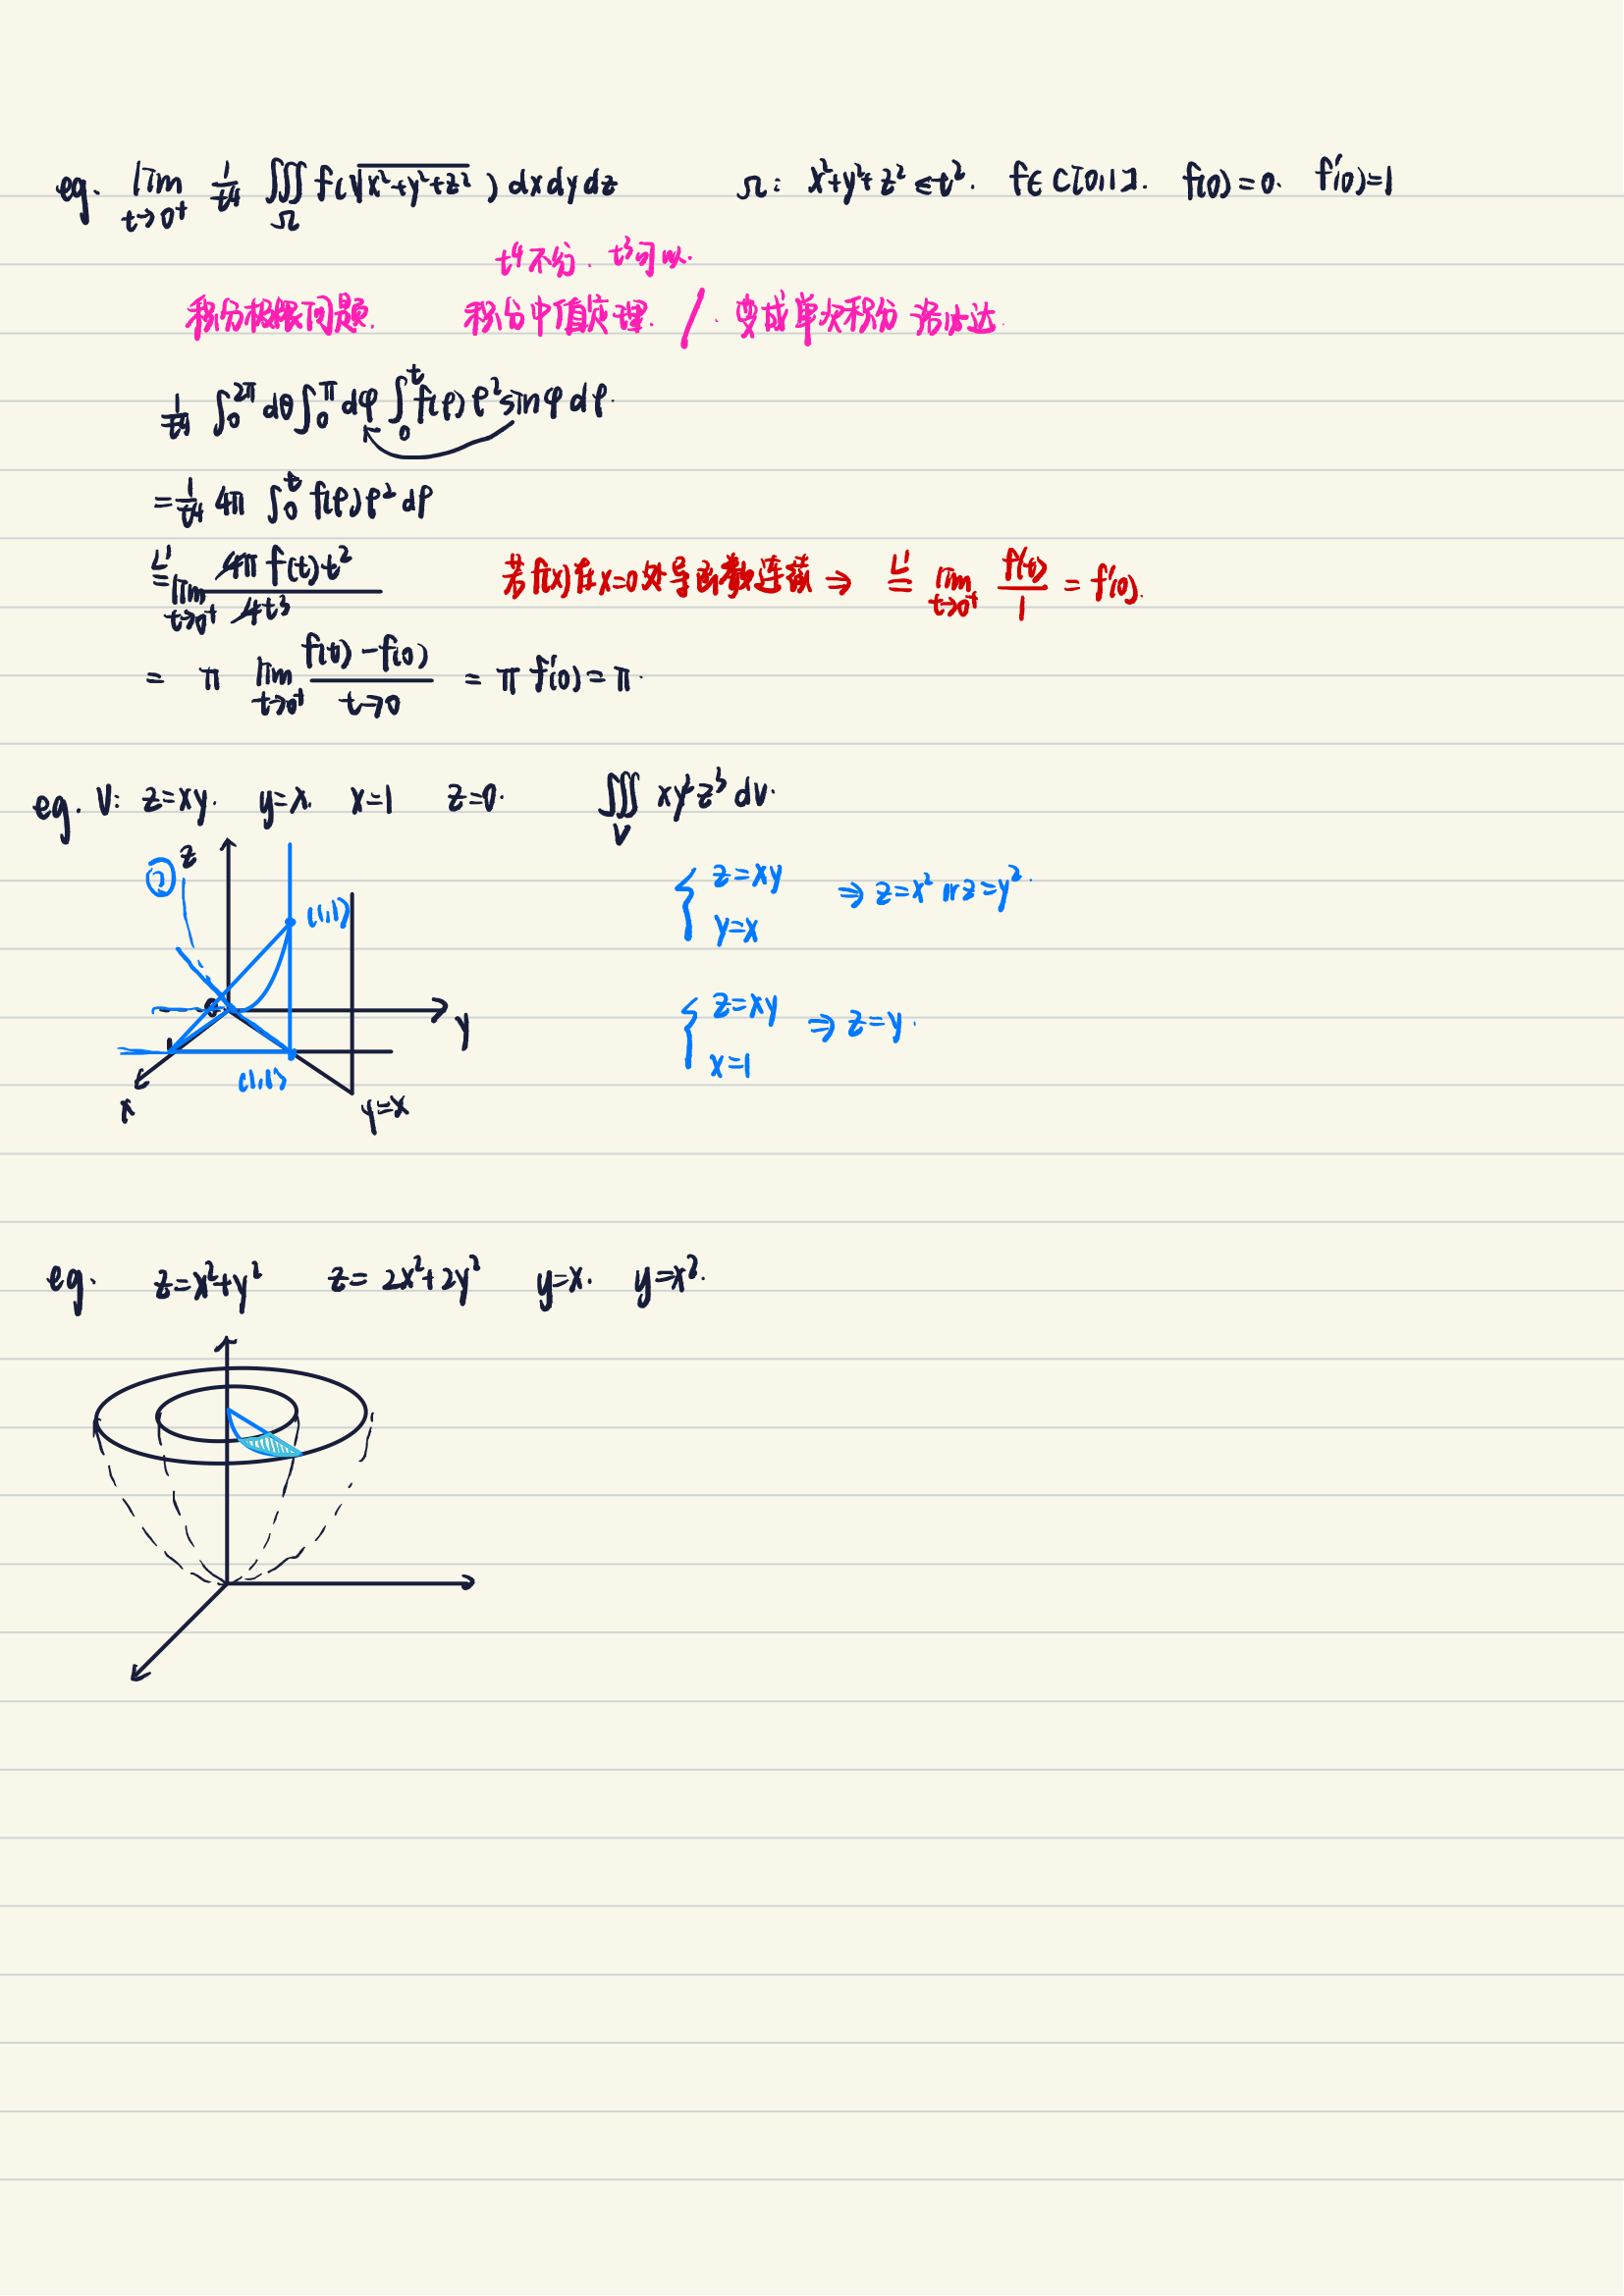 eg. lim t→0⁺ 1/t⁴ ∭Ω f(√x²+y²+z²) dxdydz Ω: x²+y²+z²≤t². f∈C[0,1]. f(0)=0. f'(0)=1
t⁴不行. t³可以.
积分极限问题. 积分中值定理. / 变成单次积分 洛必达.
1/t⁴ ∫₀^2π dθ ∫₀^π dφ ∫₀^t f(ρ) ρ² sinφ dρ.
= 1/t⁴ 4π ∫₀^t f(ρ) ρ² dρ
L' = lim t→0⁺ 4π f(t)·t² / 4t³ 若f(x)在x=0处导函数连续 ⇒ L' = lim t→0⁺ f'(t)/1 = f'(0).
= π lim t→0⁺ f(t)-f(0) / t→0 = π f'(0) = π.
eg. V: z=xy. y=x. x=1 z=0. ∭V xy²z³ dv.
z
{ z=xy y=x ⇒ z=x² or z=y².
(1,1)
{ z=xy x=1 ⇒ z=y.
y
1
(1,1)
x
y=x
eg. z=x²+y² z=2x²+2y² y=x. y=x².